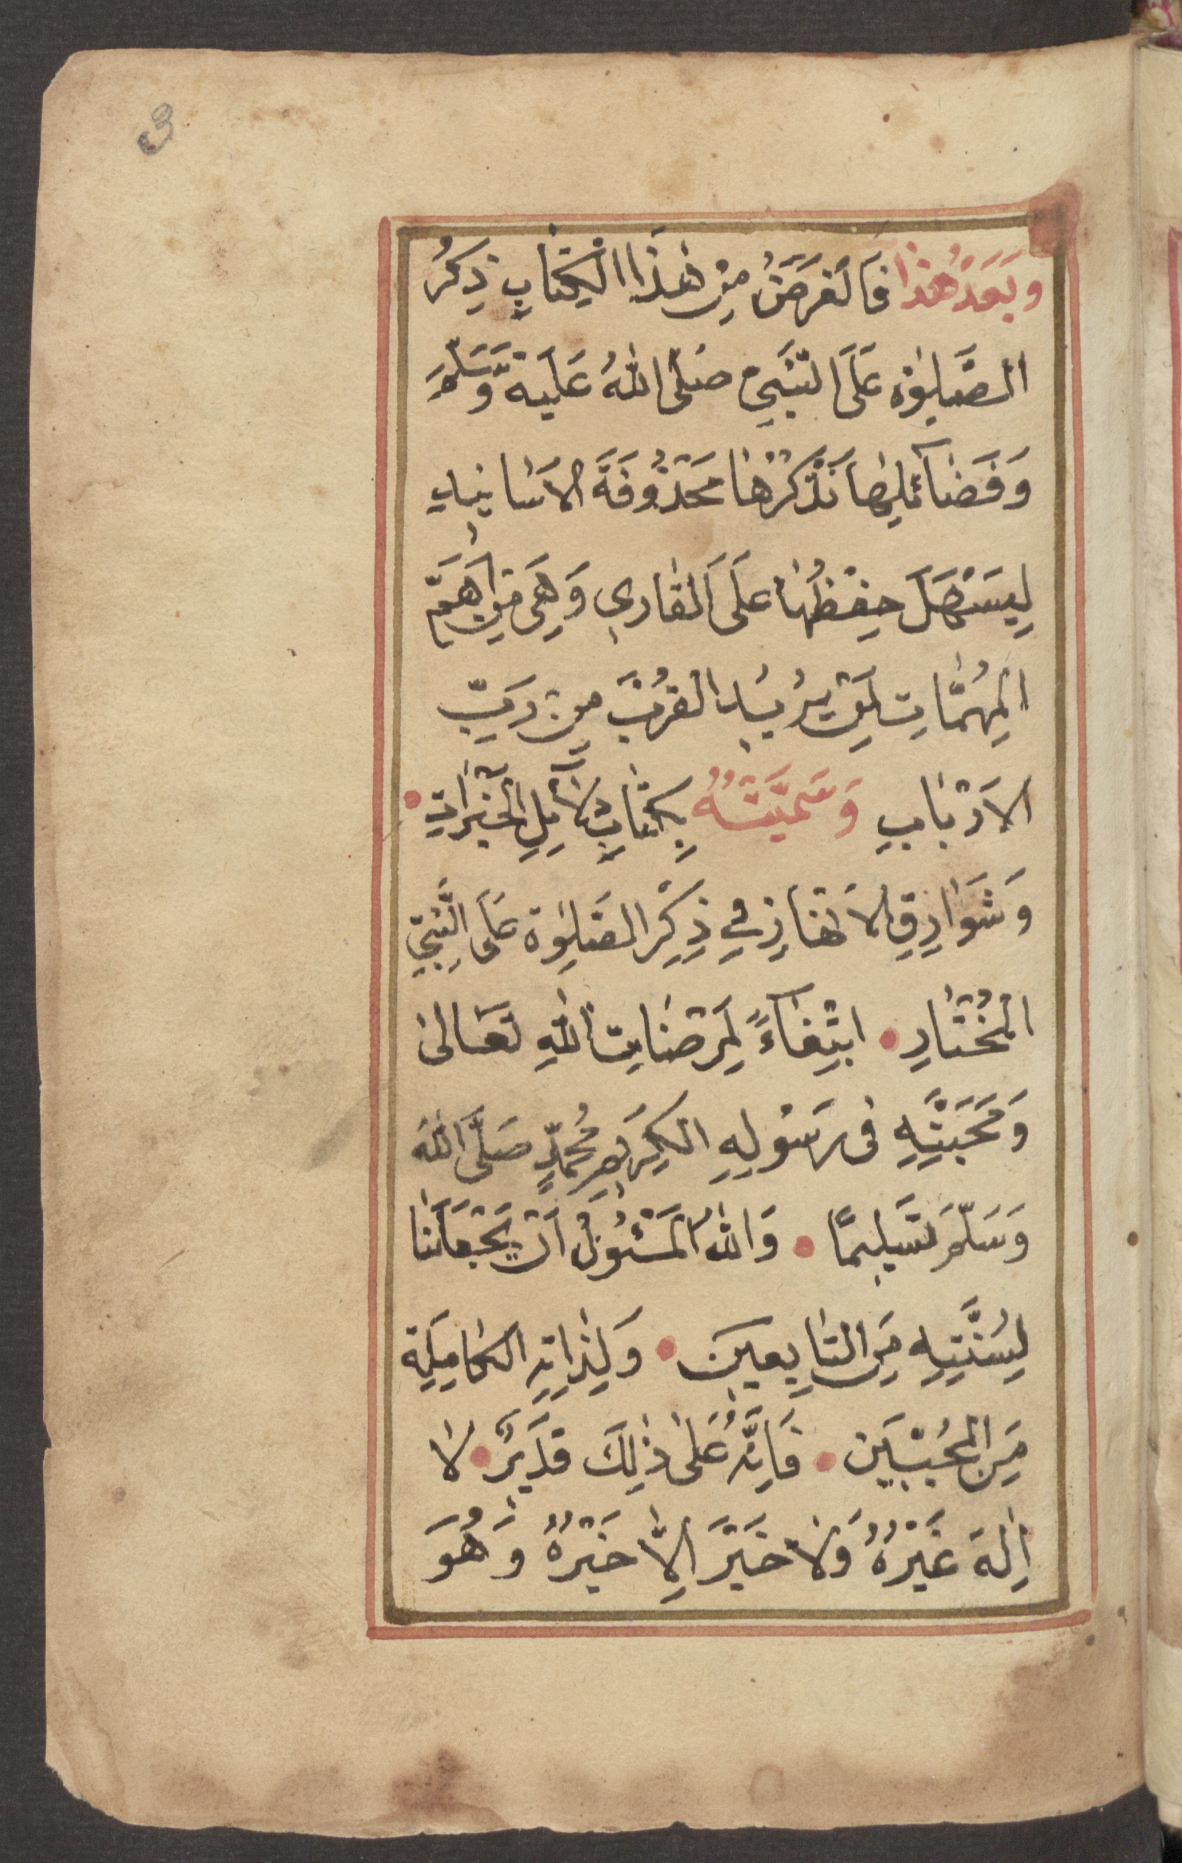 وَبَعْدَ هٰذَا فَالْغَرَضُ مِنْ هٰذَا الْكِتَابِ ذِكْرُ
الصَّلٰوةِ عَلَى النَّبِيِّ صَلَّى اللهُ عَلَيْهِ وَسَلَّمَ
وَفَضَآئِلِهَا نَذْكُرُهَا مَحْذُوفَةَ الْاَسَانِيدِ
لِيَسْهَلَ حِفْظُهَا عَلَى الْقَارِي وَهِيَ مِنْ اَهَمِّ
الْمُهِمَّاتِ لِمَنْ يُرِيدُ الْقُرْبَ مِنْ رَبِّ
الْاَرْبَابِ وَسَمَّيْتُهُ بِكِتَابِ دَلَآئِلِ الْخَيْرَاتِ
وَشَوَارِقِ الْاَنْوَارِ فِي ذِكْرِ الصَّلٰوةِ عَلَى النَّبِيِّ
الْمُخْتَارِ ابْتِغَآءً لِمَرْضَاتِ اللهِ تَعَالٰى
وَمَحَبَّتِهِ فِى رَسُولِهِ الْكَرِيمِ مُحَمَّدٍ صَلَّى اللهُ
وَسَلَّمَ تَسْلِيمًا وَاللهُ الْمَسْئُولُ اَنْ يَجْعَلَنَا
لِسُنَّتِهِ مِنَ التَّابِعِينَ وَلِذَاتِهِ الْكَامِلَةِ
مِنَ الْمُحِبِّينَ فَاِنَّهُ عَلٰى ذٰلِكَ قَدِيرٌ لَا
اِلٰهَ غَيْرُهُ وَلَا خَيْرَ اِلَّا خَيْرُهُ وَهُوَ